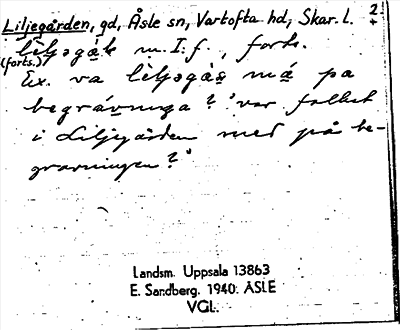 Liljegården, gd, Åsle sn, Vartofta hd, Skar. l. 2
(forts.) m. I: f., forts.
Ex. va lèljəgàs má pa
begrávniŋa? 'var folket
i Liljegården med på be-
gravningen?'
Landsm. Uppsala 13863
E. Sandberg. 1940. ÅSLE
VGL.